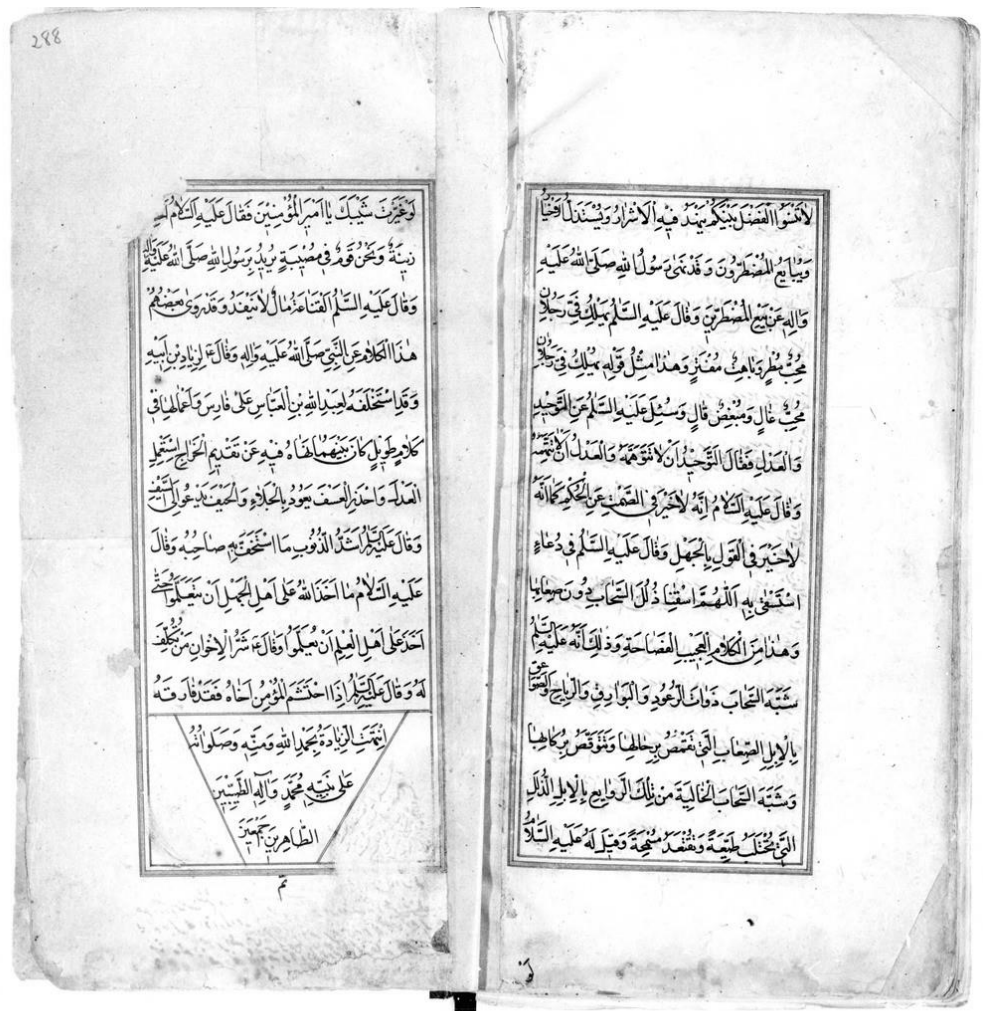 لا تنسوا الفضل بينكم ينهد فيه الاشرار ويستذل الاخيار
ويبايع المضطرون وقد نهى رسول الله صلى الله عليه
واله عن بيع المضطرين وقال عليه السلم يهلك فيّ رجلان
محبّ مطر وباهت مفتر وهذا مثل قوله يهلك فيّ رجلان
محبّ غال ومبغض قال وسئل عليه السلم عن التوحيد
والعدل فقال التوحيد ان لا تتوهمه والعدل ان لا تتهمه
وقال عليه السلام انه لا خير في الصمت عن الحكم كما انه
لا خير في القول بالجهل وقال عليه السلم في دعاء
استسقى به اللهم اسقنا ذلل السحاب دون صعابها
وهذا من الكلام العجيب الفصاحة وذلك انه عليه السلم
شبه السحاب ذوات الرعود والبوارق والرياح والصواعق
بالابل الصعاب التي تقمص برحالها وتتوقص بركابها
وشبه السحاب الخالية من تلك الروايع بالابل الذلل
التي تحتلب طيعة وتقتعد مسمحة وقيل له عليه السلام
لو
288
لو غيرت شيبك يا امير المؤمنين فقال عليه السلام
زينة ونحن قوم في مصيبة يريد برسول الله صلى الله عليه واله
وقال عليه السلم القناعة مال لا ينفد وقد روى بعضهم
هذا الكلام عن النبي صلى الله عليه واله وقال ع لزياد بن ابيه
وقد استخلفه لعبد الله بن العباس على فارس واعمالها في
كلام طويل كان بينهما نهاه فيه عن تقديم الخراج استعمل
العدل واحذر العسف يعود بالجلاء والحيف يدعو الى السيف
وقال عليه السلم اشد الذنوب ما استخف به صاحبه وقال
عليه السلام ما اخذ الله على اهل الجهل ان يتعلموا حتى
اخذ على اهل العلم ان يعلموا وقال ع شر الاخوان من تكلف
له وقال عليه السلم اذا احتشم المؤمن اخاه فقد فارقه
انتهت الزيادة بحمد الله ومنه وصلواته
على نبيه محمد وآله الطيبين
الطاهرين اجمعين
تم